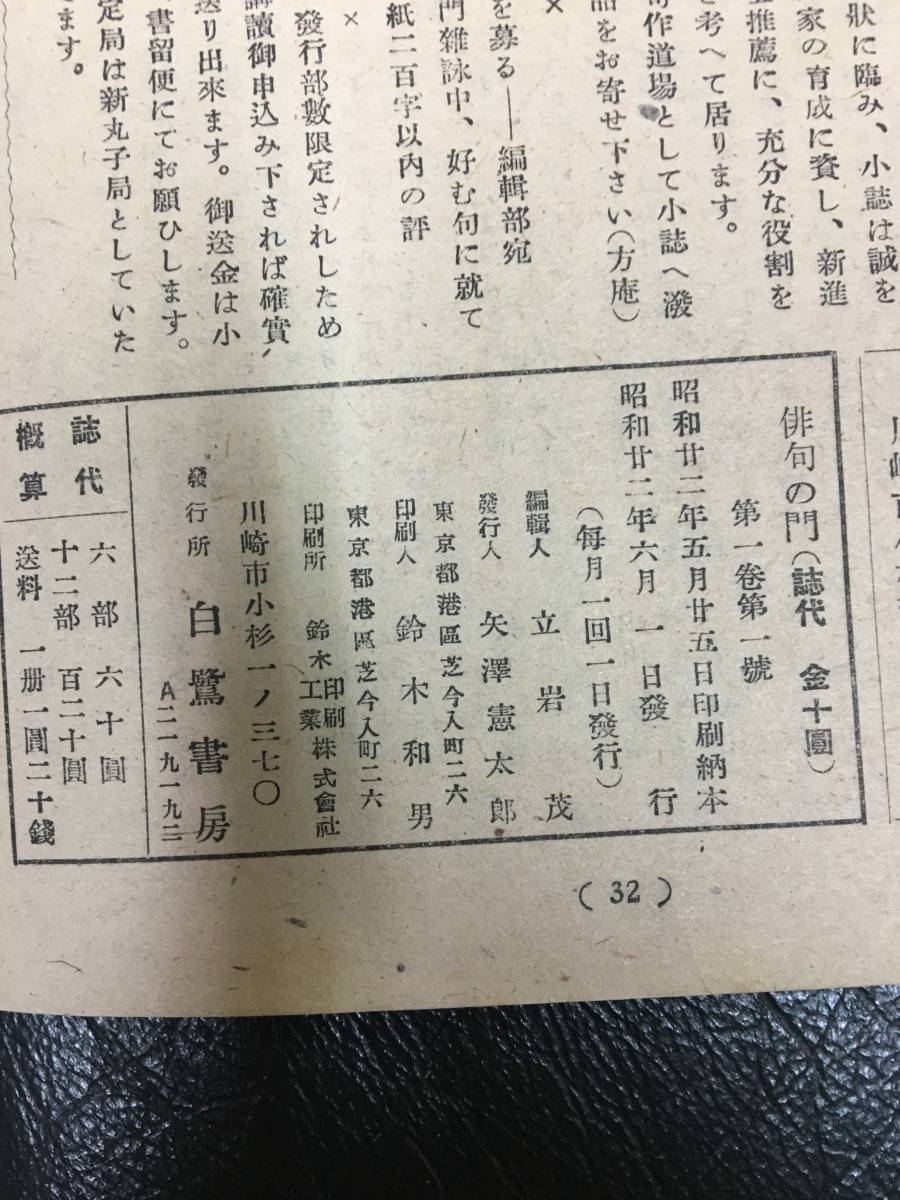 狀に臨み、小誌は誠を
家の育成に資し、新進
推薦に、充分な役割を
考へて居ります。
作道場として小誌へ潑
をお寄せ下さい（方庵）
×
を募る――編輯部宛
門雜詠中、好む句に就て
紙二百字以內の評
×
發行部數限定されしため
購讀御申込み下され ば確實
送り出來ます。御送金は小
書留便にてお願ひします。
定局は新丸子局としていた
ます。
俳句の門（誌代　金十圓）
第一卷第一號
昭和廿二年五月廿五日印刷納本
昭和廿二年六月一日發行
（每月一回一日發行）
編輯人　立岩茂
發行人　矢澤憲太郎
東京都港區芝今入町二六
印刷人　鈴木和男
東京都港區芝今入町二六
印刷所　鈴木印刷工業株式會社
川崎市小杉一ノ三七〇
發行所　白鷺書房
A二一九一九二
誌代概算
六部　六十圓
十二部　百二十圓
送料　一册一圓二十錢
(32)